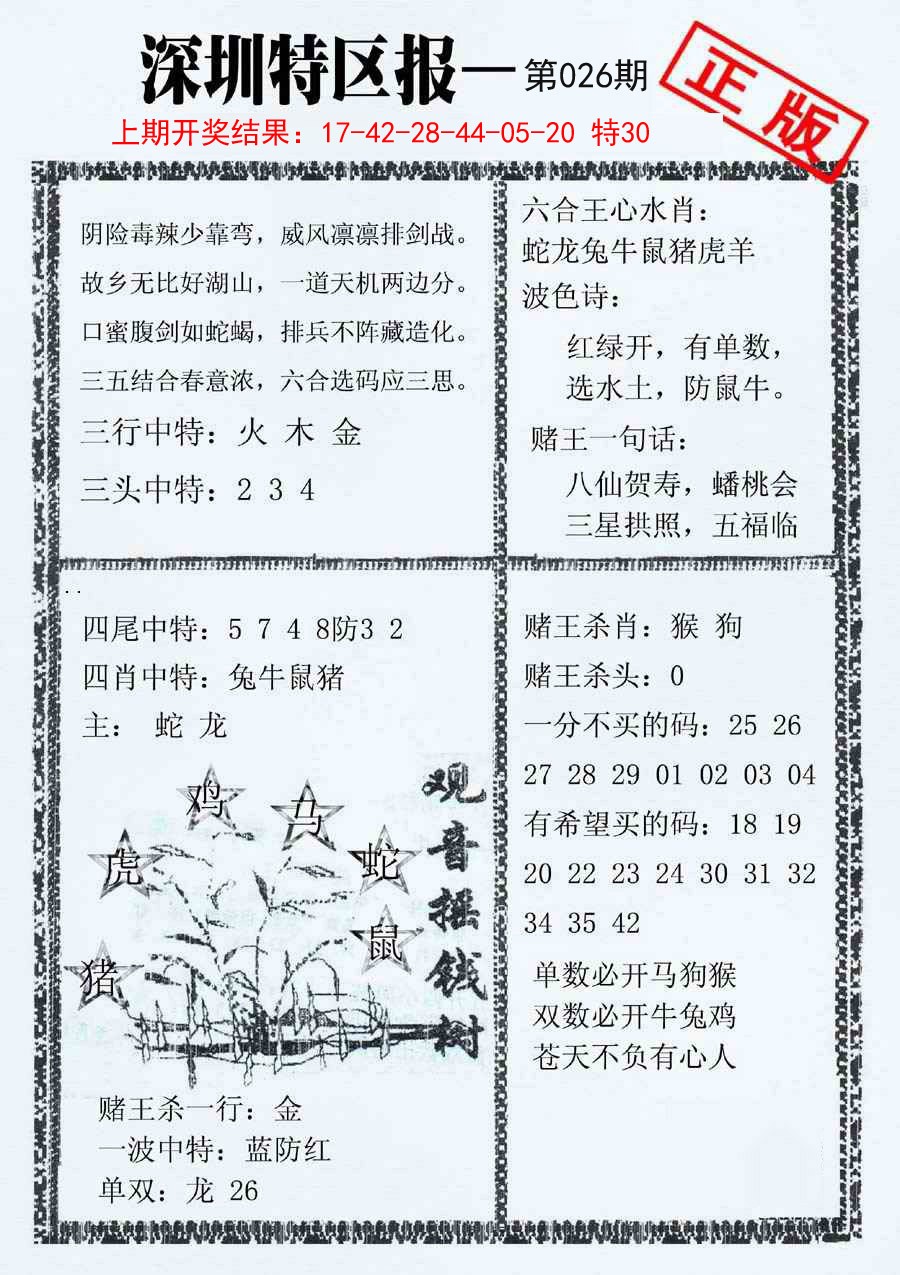 深圳特区报—第026期
正版
上期开奖结果：17-42-28-44-05-20 特30
阴险毒辣少靠弯，威风凛凛排剑战。
故乡无比好湖山，一道天机两边分。
口蜜腹剑如蛇蝎，排兵不阵藏造化。
三五结合春意浓，六合选码应三思。
三行中特：火 木 金
三头中特：2 3 4
六合王心水肖：
蛇龙兔牛鼠猪虎羊
波色诗：
红绿开，有单数，
选水土，防鼠牛。
赌王一句话：
八仙贺寿，蟠桃会
三星拱照，五福临
四尾中特：5 7 4 8防3 2
四肖中特：兔牛鼠猪
主： 蛇 龙
鸡
马
虎
蛇
鼠
猪
观音摇钱树
赌王杀一行：金
一波中特：蓝防红
单双：龙 26
赌王杀肖：猴 狗
赌王杀头：0
一分不买的码：25 26
27 28 29 01 02 03 04
有希望买的码：18 19
20 22 23 24 30 31 32
34 35 42
单数必开马狗猴
双数必开牛兔鸡
苍天不负有心人